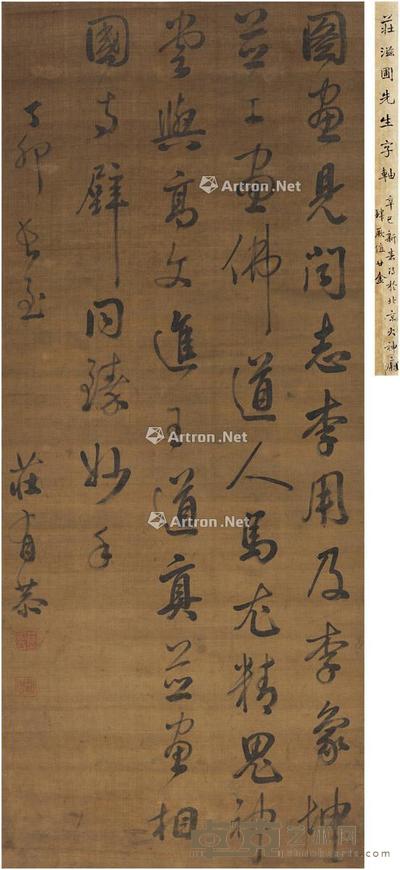 圖畫見聞志李用及李象坤
並工畫佛道人馬尤精鬼神
嘗與高文進王道真並畫相
國寺壁同臻妙手
丁卯長至
莊有恭
莊滋圃先生字軸
辛巳新春得於北京火神廟
肆 值廿金
Artron.Net
Artron.Net
Artron.Net
Artron.Net
Artron.Net
Artron.Net